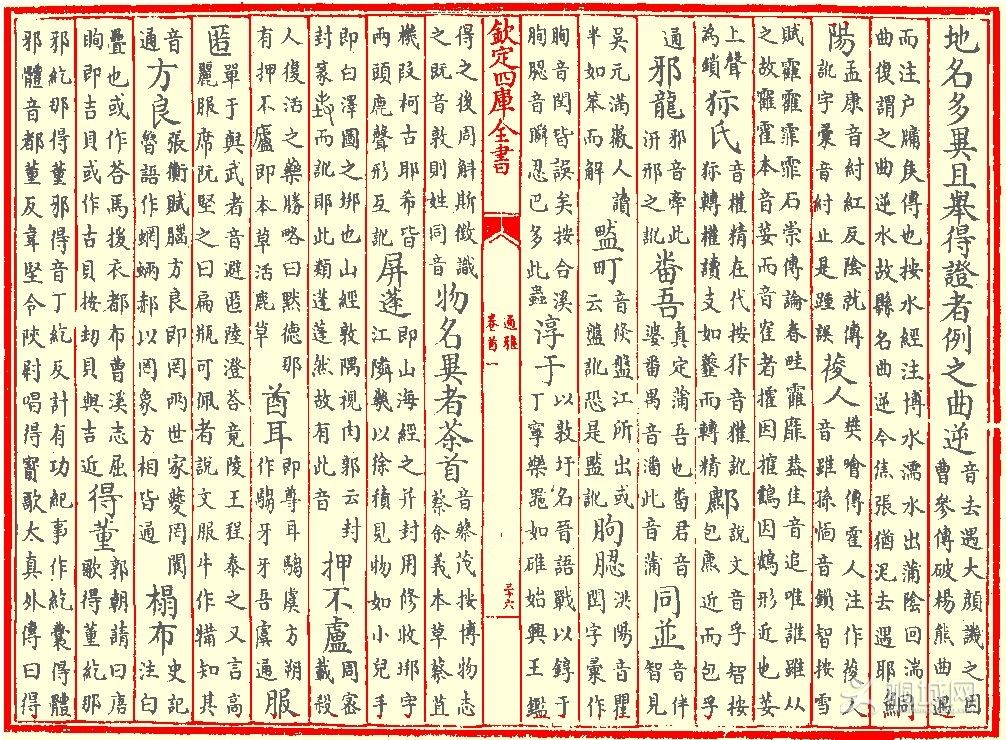 地名多異且舉得證者例之曲逆音去遇大顏譏之因
曹參傳破楊熊曲遇
而注户牖矦傳也按水經注博水濡水出蒲陰回湍
曲復謂之曲逆水故縣名曲逆今焦張猶泥去遇耶鮦
陽孟康音紂紅反陰就傳
訛字彚音紂止是踵誤葰人樊噲傳霍人注作葰人
音雖孫愐音鎖智按雪
賦靃靃霏霏石崇傳論春畦靃靡葢隹音追唯誰雖从
之故靃霍本音荽而音寉者㩴因搉鶴因鸖形近也荽
上聲
為鎖狋氏音權精在代按狋音獾訛
狋轉權讀支如虀而轉精鄜說文音孚智按
包麃近而包孚
通邪龍邪音牽此
汧邪之訛番吾真定蒲吾也番君音
婆番禺音潘此音蒲同並音伴
智見
吳元滿徽人讀
半如笨而解䀋町音倐盤江所出或
云盤訛恐是監訛朐䏰洪陽音瞿
閏字彚作
朐音閏皆誤矣按合溪
朐䏰音䐇忍巴多此蟲淳于以敦圩名吾語戰以錞于
丁寧樂罷如碓始興王鑑
欽定四庫全書
通雅
卷首一
三十六
得之後周斛斯徴識
之既音敦則姓同音物名異者荼首音蔡茂按博物志
蔡余義本草蔡苴
機叚柯古耶希皆
兩頭鹿聲形互訛屏蓬即山海經之并封用修收㟁字
江隣㡬以徐積見物如小兒手
即白澤圖之㟁也山經敦隅視肉郭云封
封豪彘而訛耶此類蓬蓬然故有此音押不盧周密
載殺
人復活之藥勝略曰黙德那
有押不廬即本草活鹿草酋耳即尊耳騶虞方朔
作騶牙牙吾虞通服
匿單于與武者音避匿陸澄荅竟陵王程泰之又言高
麗服席阮堅之曰扁瓶可佩者說文服牛作犕知其
音
通方良張衡賦腦方良即罔兩世家夔罔閬
魯語作蝄蜽郝以罔象方相皆通榻布史記
注白
疊也或作荅馬援衣都布曹溪志屈
朐即吉貝或作古貝按刼貝與吉近得董郭朝請曰唐
歌得董紇那
邪紇那得董邪得音丁紇反計有功紀事作紇囊得體
邪體音都董反韋堅令陝尉唱得寳歌太真外傳曰得